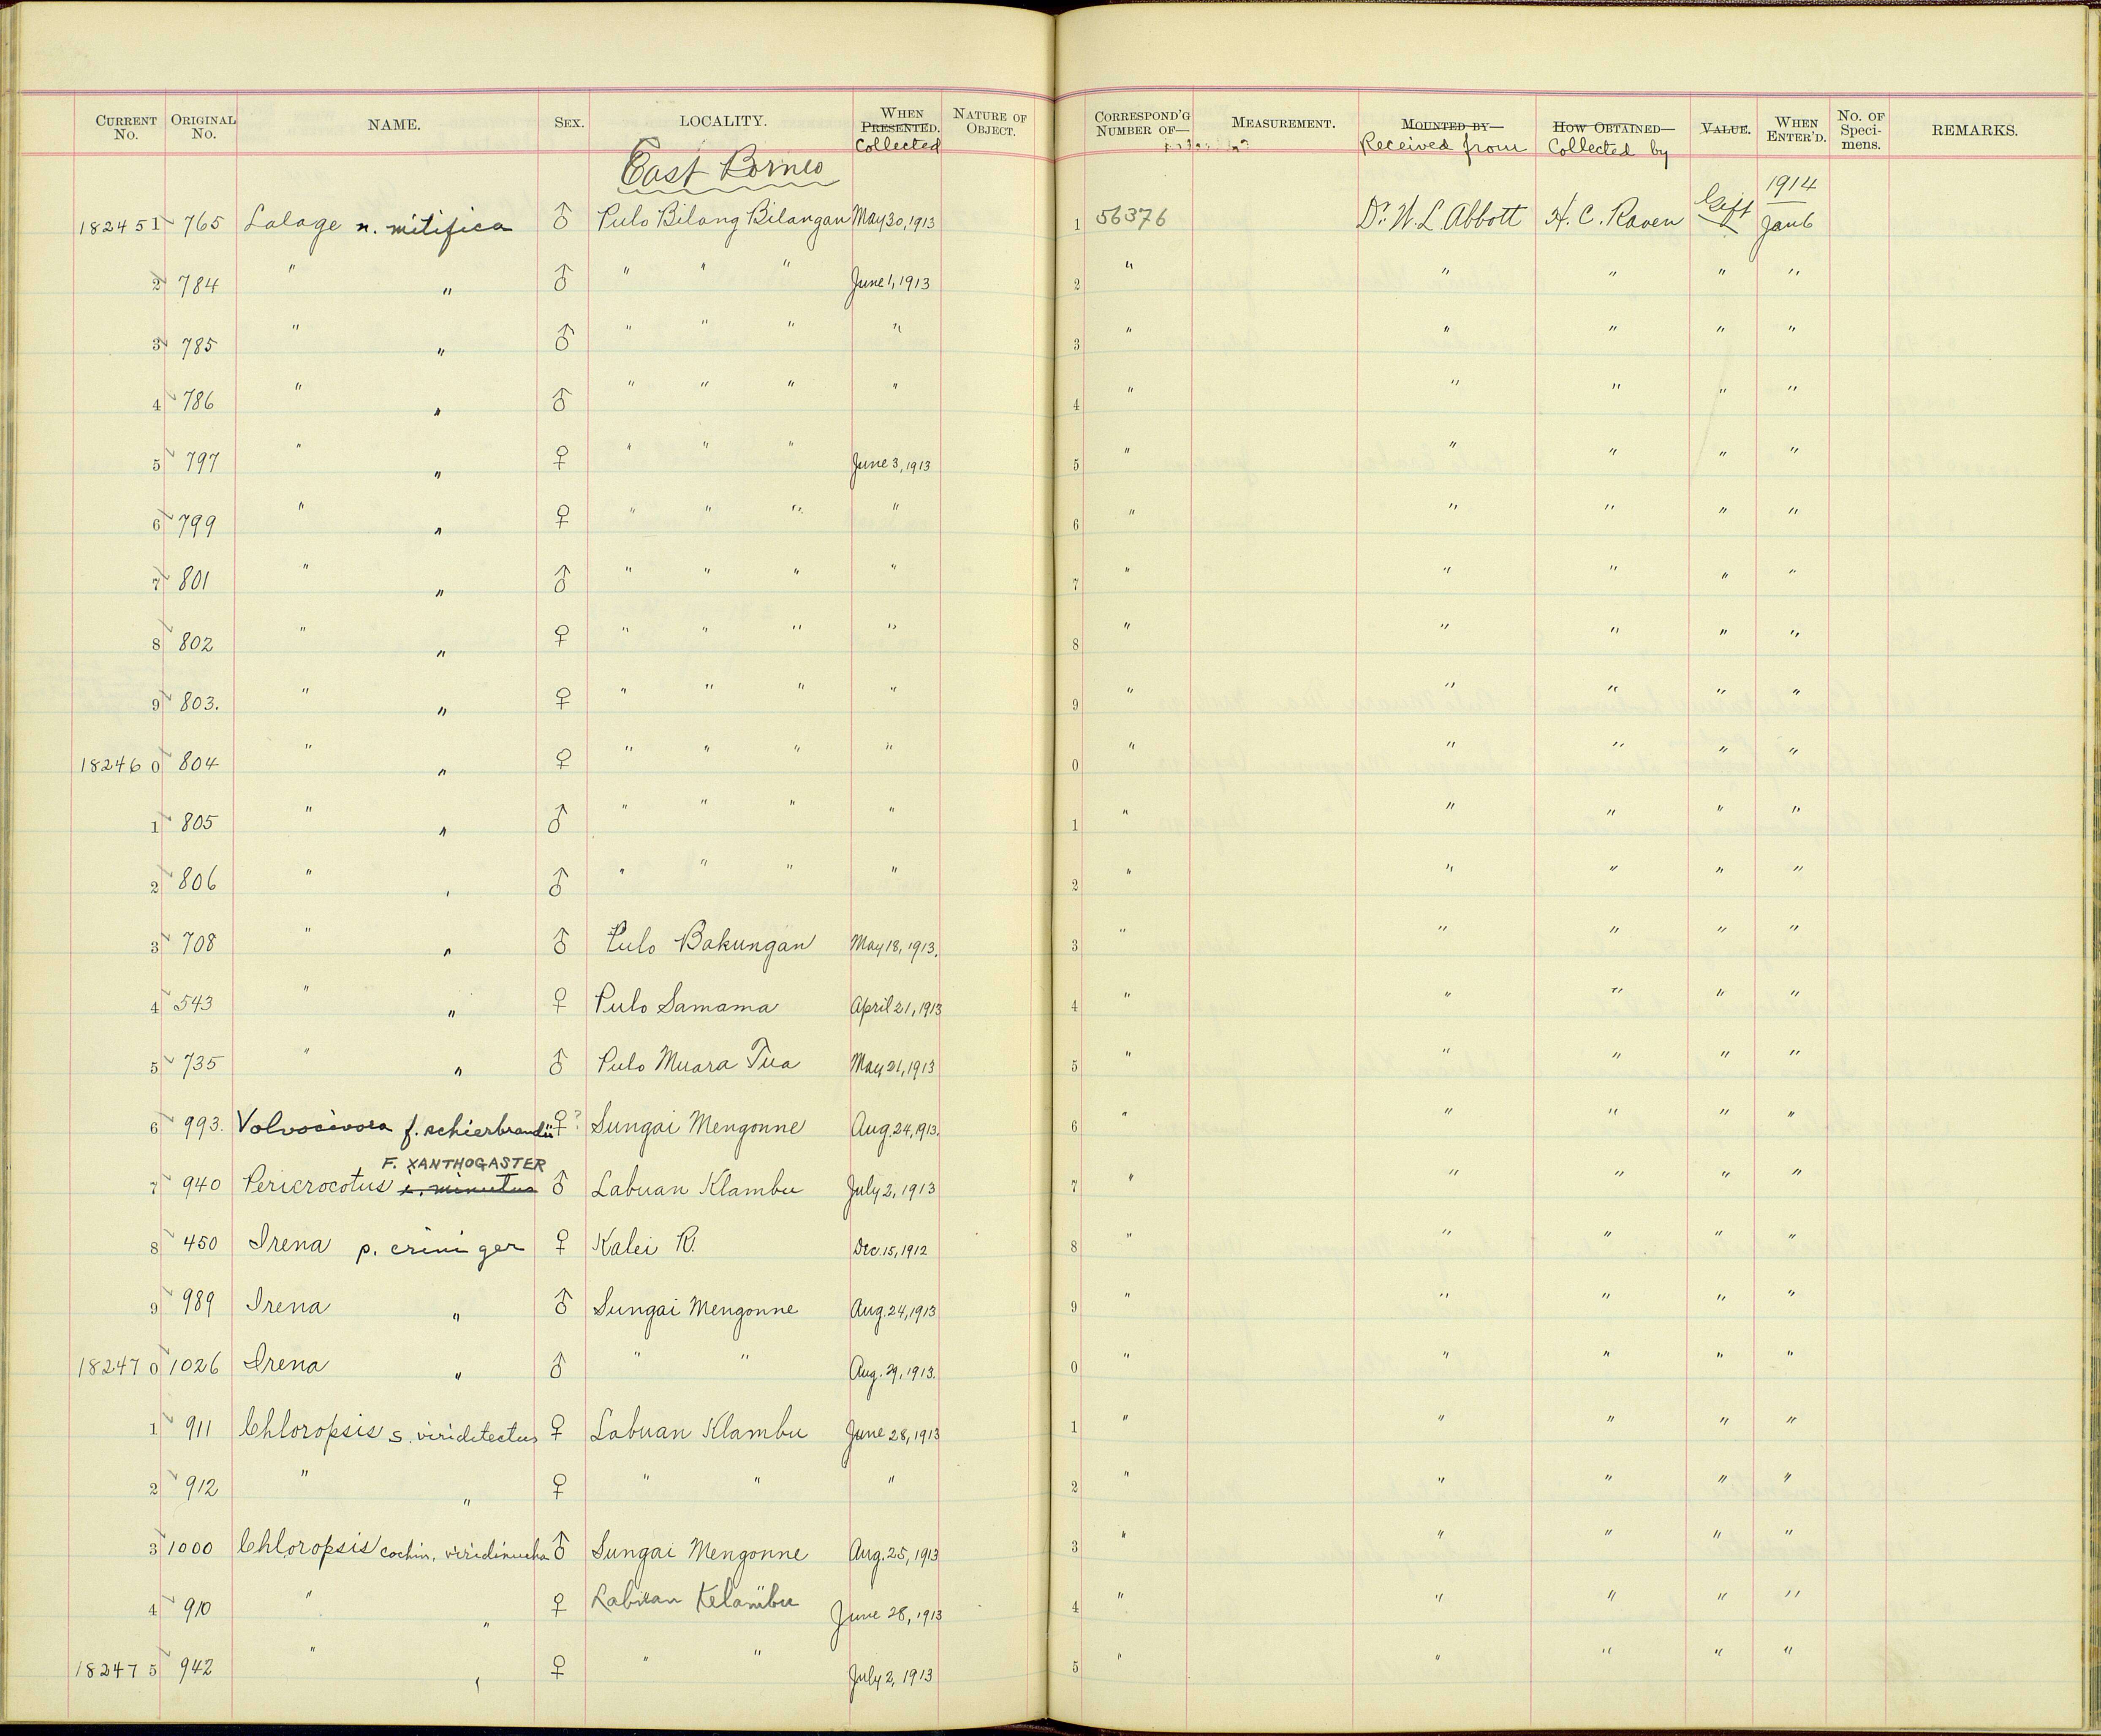 CURRENT No. ORIGINAL No. NAME. SEX. LOCALITY. WHEN PRESENTED. Collected NATURE OF OBJECT. CORRESPOND'G NUMBER OF— MEASUREMENT. MOUNTED BY— Received from HOW OBTAINED— Collected by VALUE. WHEN ENTER'D. No. OF Speci- mens. REMARKS.
East Borneo
1914
182451 765 Lalage n. mitifica ♂ Pulo Bilang Bilangan May 30, 1913 1 56376 Dr. W. L. Abbott H. C. Raven Gift Jan 6
2 784 " " ♂ " " " June 1, 1913 2 " " " " "
3 785 " " ♂ " " " " 3 " " " " "
4 786 " " ♂ " " " " 4 " " " " "
5 797 " " ♀ " " " June 3, 1913 5 " " " " "
6 799 " " ♀ " " " " 6 " " " " "
7 801 " " ♂ " " " " 7 " " " " "
8 802 " " ♀ " " " " 8 " " " " "
9 803. " " ♀ " " " " 9 " " " " "
182460 804 " " ♀ " " " " 0 " " " " "
1 805 " " ♂ " " " " 1 " " " " "
2 806 " " ♂ " " " " 2 " " " " "
3 708 " " ♂ Pulo Bakungan May 18, 1913. 3 " " " " "
4 543 " " ♀ Pulo Samama April 21, 1913 4 " " " " "
5 735 " " ♂ Pulo Muara Tua May 21, 1913 5 " " " " "
6 993. Volvocivora f. schierbrandii ♀? Sungai Mengonne Aug. 24, 1913. 6 " " " " "
F. XANTHOGASTER
7 940 Pericrocotus i. minutus ♂ Labuan Klambu July 2, 1913 7 " " " " "
8 450 Irena p. criniger ♀ Kalei R. Dec. 15, 1912 8 " " " " "
9 989 Irena " ♂ Sungai Mengonne Aug. 24, 1913 9 " " " " "
182470 1026 Irena " ♂ " " Aug. 29, 1913. 0 " " " " "
1 911 Chloropsis s. viriditectus ♀ Labuan Klambu June 28, 1913 1 " " " " "
2 912 " " ♀ " " " 2 " " " " "
3 1000 Chloropsis cochin. viridinucha ♂ Sungai Mengonne Aug. 25, 1913 3 " " " " "
4 910 " " ♀ Labuan Kelambu June 28, 1913 4 " " " " "
182475 942 " " ♀ " " July 2, 1913 5 " " " " "